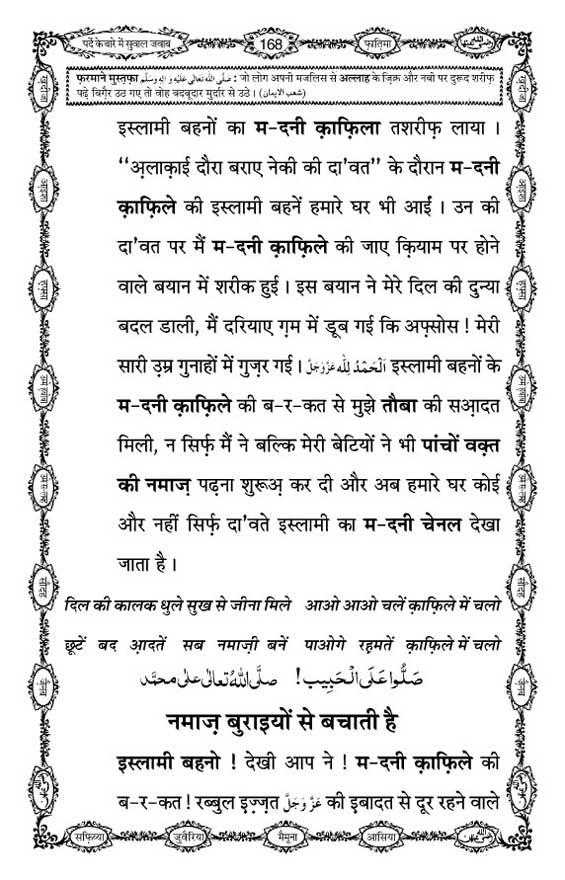 पर्दे के बारे में सुवाल जवाब
168
फ़ातिमा
फ़रमाने मुस्तफ़ा صَلَّى اللهُ تَعَالٰى عَلَيْهِ وَاٰلِهٖ وَسَلَّم : जो लोग अपनी मजलिस से अल्लाह के ज़िक्र और नबी पर दुरूद शरीफ़
पढ़े बिग़ैर उठ गए तो वोह बदबूदार मुर्दार से उठे । (شعب الایمان)
इस्लामी बहनों का म-दनी क़ाफ़िला तशरीफ़ लाया ।
“अ़लाक़ाई दौरा बराए नेकी की दा'वत” के दौरान म-दनी
क़ाफ़िले की इस्लामी बहनें हमारे घर भी आईं । उन की
दा'वत पर मैं म-दनी क़ाफ़िले की जाए क़ियाम पर होने
वाले बयान में शरीक हुई । इस बयान ने मेरे दिल की दुन्या
बदल डाली, मैं दरियाए ग़म में डूब गई कि अफ़्सोस ! मेरी
सारी उ़म्र गुनाहों में गुज़र गई । اَلْحَمْدُ لِلّٰه عَزَّوَجَلَّ इस्लामी बहनों के
म-दनी क़ाफ़िले की ब-र-कत से मुझे तौबा की सआ़दत
मिली, न सिर्फ़ मैं ने बल्कि मेरी बेटियों ने भी पांचों वक़्त
की नमाज़ पढ़ना शुरूअ़ कर दी और अब हमारे घर कोई
और नहीं सिर्फ़ दा'वते इस्लामी का म-दनी चेनल देखा
जाता है ।
दिल की कालक धुले सुख से जीना मिले आओ आओ चलें क़ाफ़िले में चलो
छूटें बद आ़दतें सब नमाज़ी बनें पाओगे रहमतें क़ाफ़िले में चलो
صَلُّوا عَلَى الْحَبِيب! صلَّى اللهُ تعالٰى على محمَّد
नमाज़ बुराइयों से बचाती है
इस्लामी बहनो ! देखी आप ने ! म-दनी क़ाफ़िले की
ब-र-कत ! रब्बुल इ़ज़्ज़त عَزَّ وَجَلَّ की इबादत से दूर रहने वाले
सफ़िय्या
जुवैरिया
मैमूना
आसिया